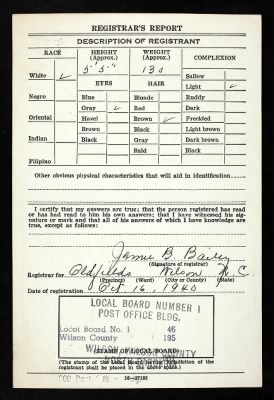 REGISTRAR'S REPORT
DESCRIPTION OF REGISTRANT
RACE HEIGHT (Approx.) WEIGHT (Approx.) COMPLEXION
White ✓ 5' 5" 130 Sallow
EYES HAIR Light ✓
Negro Blue Blonde Ruddy
Gray ✓ Red Dark
Oriental Hazel Brown ✓ Freckled
Brown Black Light brown
Indian Black Gray Dark brown
Bald Black
Filipino
Other obvious physical characteristics that will aid in identification
I certify that my answers are true; that the person registered has read
or has had read to him his own answers; that I have witnessed his sig-
nature or mark and that all of his answers of which I have knowledge are
true, except as follows:
B. Bailey
(Signature of registrar)
Registrar for Oldfields Wilson N C
(Precinct) (Ward) (City or County) (State)
Date of registration Oct 16, 1940
LOCAL BOARD NUMBER 1
POST OFFICE BLDG.
Local Board No. 1 46
Wilson County 195
WILSON COUNTY
(STAMP OF LOCAL BOARD)
(The stamp of the Local Board having jurisdiction of the
registrant shall be placed in the above space.)